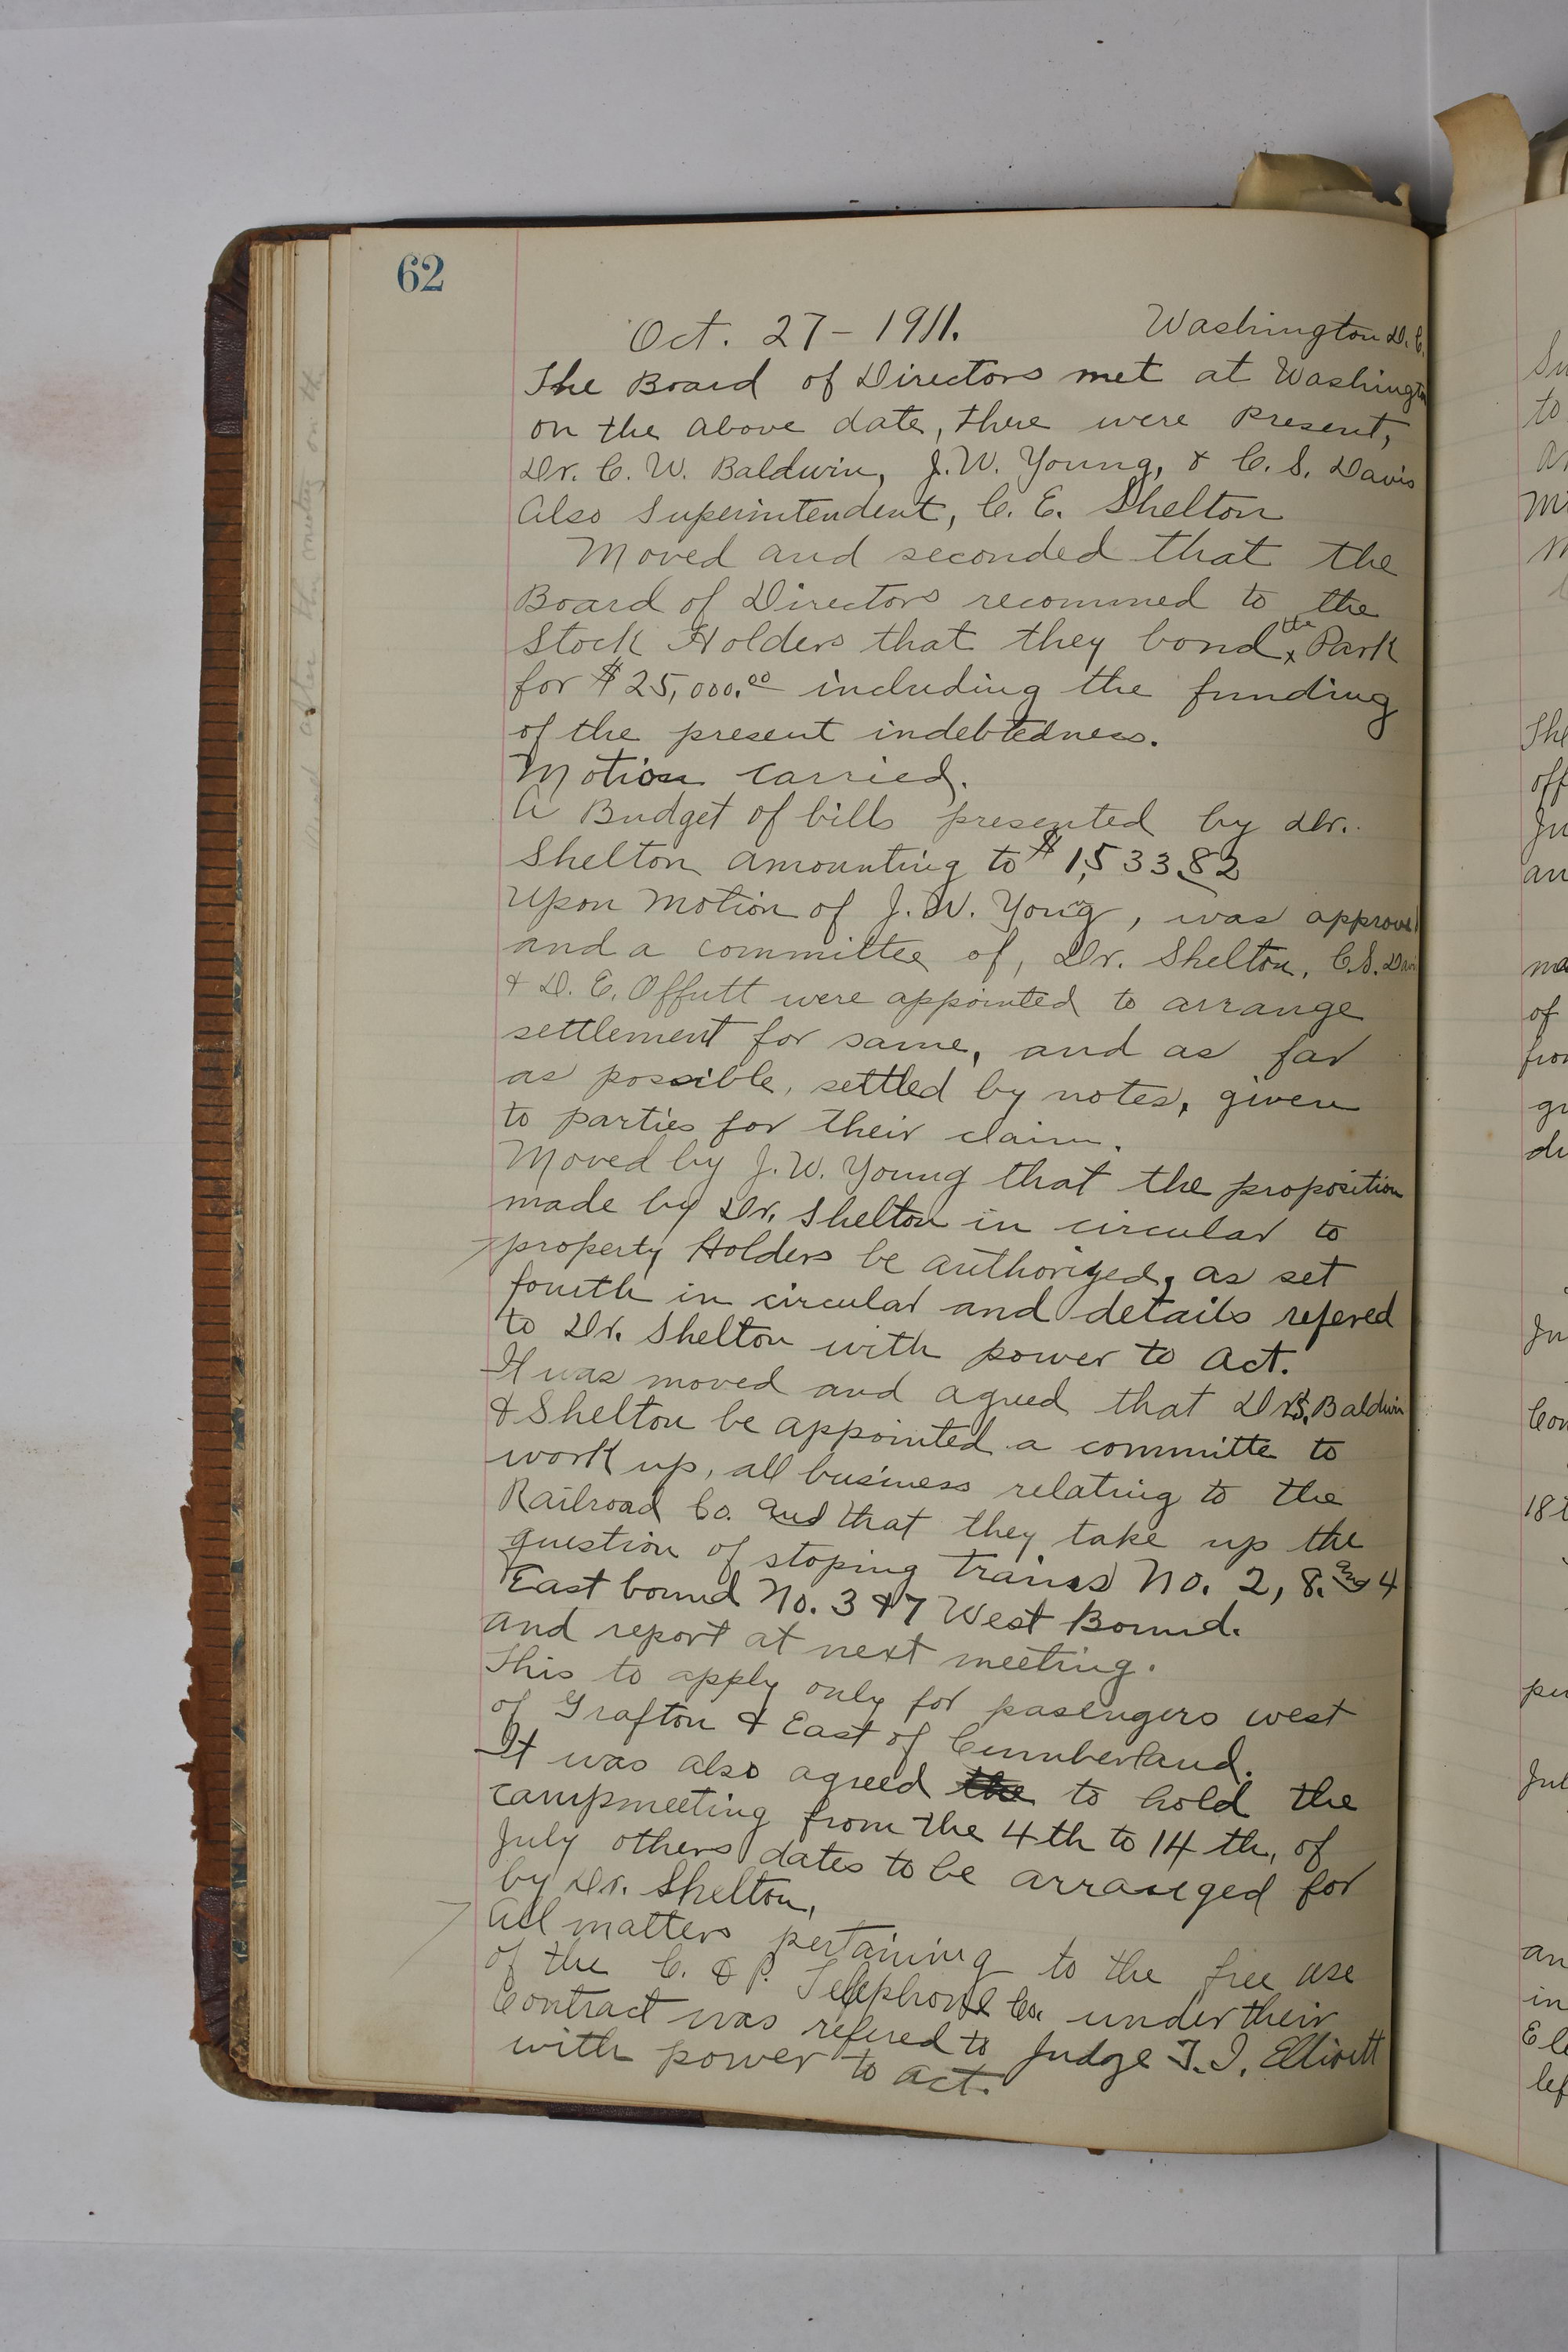 62
Oct. 27 - 1911. Washington D.C.
The Board of Directors met at Washington
on the above date, there were Present,
Dr. C. W. Baldwin, J. W. Young, & C. S. Davis
Also Superintendent, C. E. Shelton
Moved and seconded that the
Board of Directors recommed to the
Stock Holders that they bond the Park
for $25,000.00 including the funding
of the present indebtedness.
Motion carried.
A Budget of bills presented by Dr.
Shelton amounting to $1,533.82
Upon motion of J. W. Young, was approved
and a committee of, Dr. Shelton, C.S. Davis
& D. E. Offutt were appointed to arrange
settlement for same, and as far
as possible, settled by notes, given
to parties for their claim.
Moved by J. W. Young that the proposition
made by Dr. Shelton in circular to
property Holders be authorized, as set
fourth in circular and details refered
to Dr. Shelton with power to act.
It was moved and agreed that Drs. Baldwin
& Shelton be appointed a committe to
work up, all business relating to the
Railroad Co. and that they take up the
question of stoping trains No. 2, 8. and 4
East bound No. 3 & 7 West Bound.
and report at next meeting.
This to apply only for pasengers west
of Grafton & East of Cumberland.
It was also agreed the to hold the
campmeeting from the 4th to 14 th, of
July others dates to be arranged for
by Dr. Shelton,
All matters pertaining to the free use
of the C. & P. Telephone Co. under their
Contract was refered to Judge T. I. Elliott
with power to act.